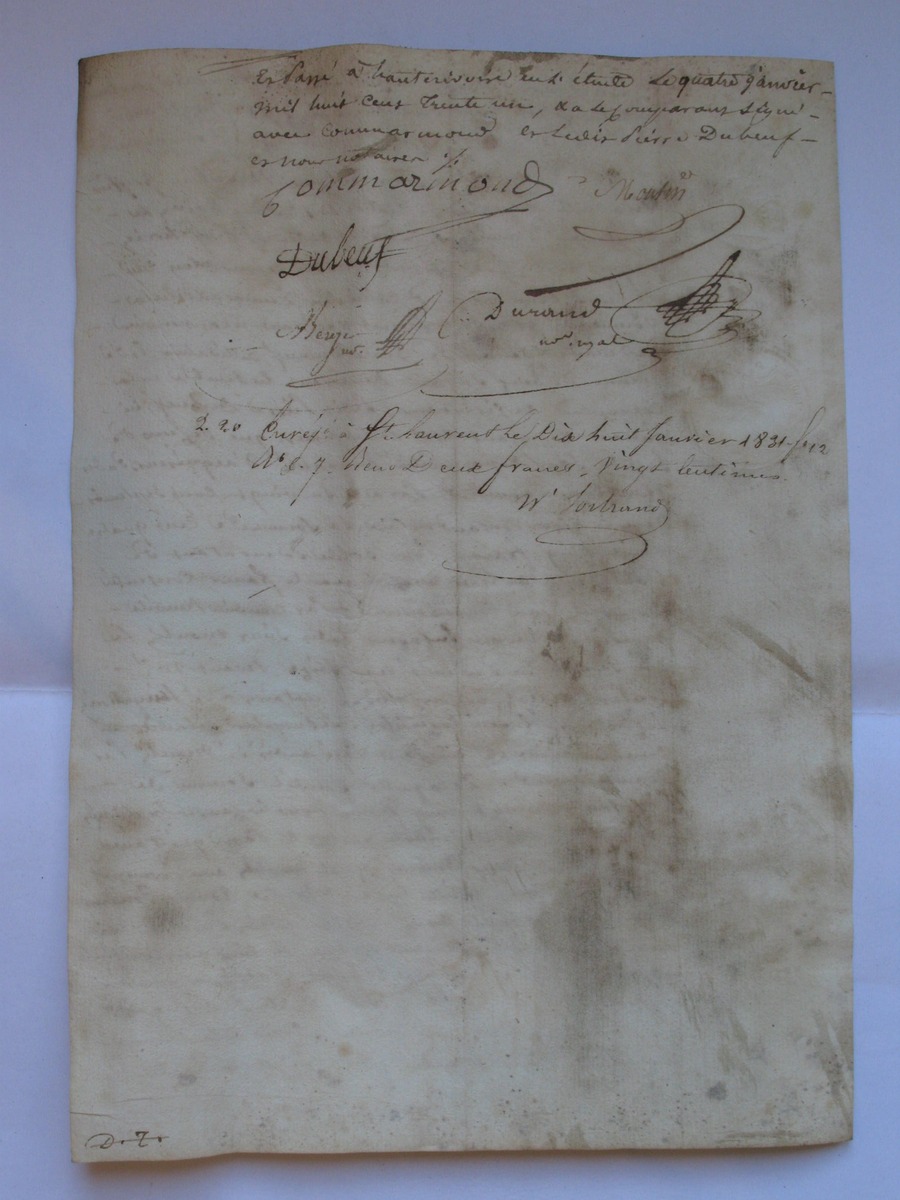 et Passé à hauterivoire en l'étude le quatre janvier
mil huit cent trente un, & a le comparant signé
avec commarmond et ledit Pierre Dubeuf
et nous notaires
Commarmond
Dubeuf
Durand
no.re royal
2. 20 Enreg. à St. Laurent le Dix huit Janvier 1831
Deux francs vingt centimes
D. 7.